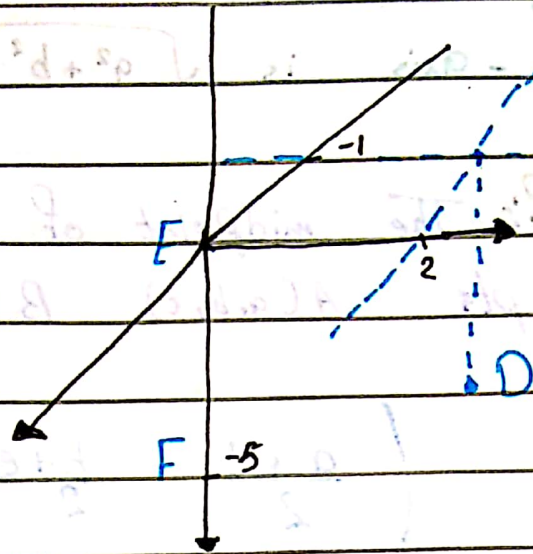 -1
E
2
D
F -5